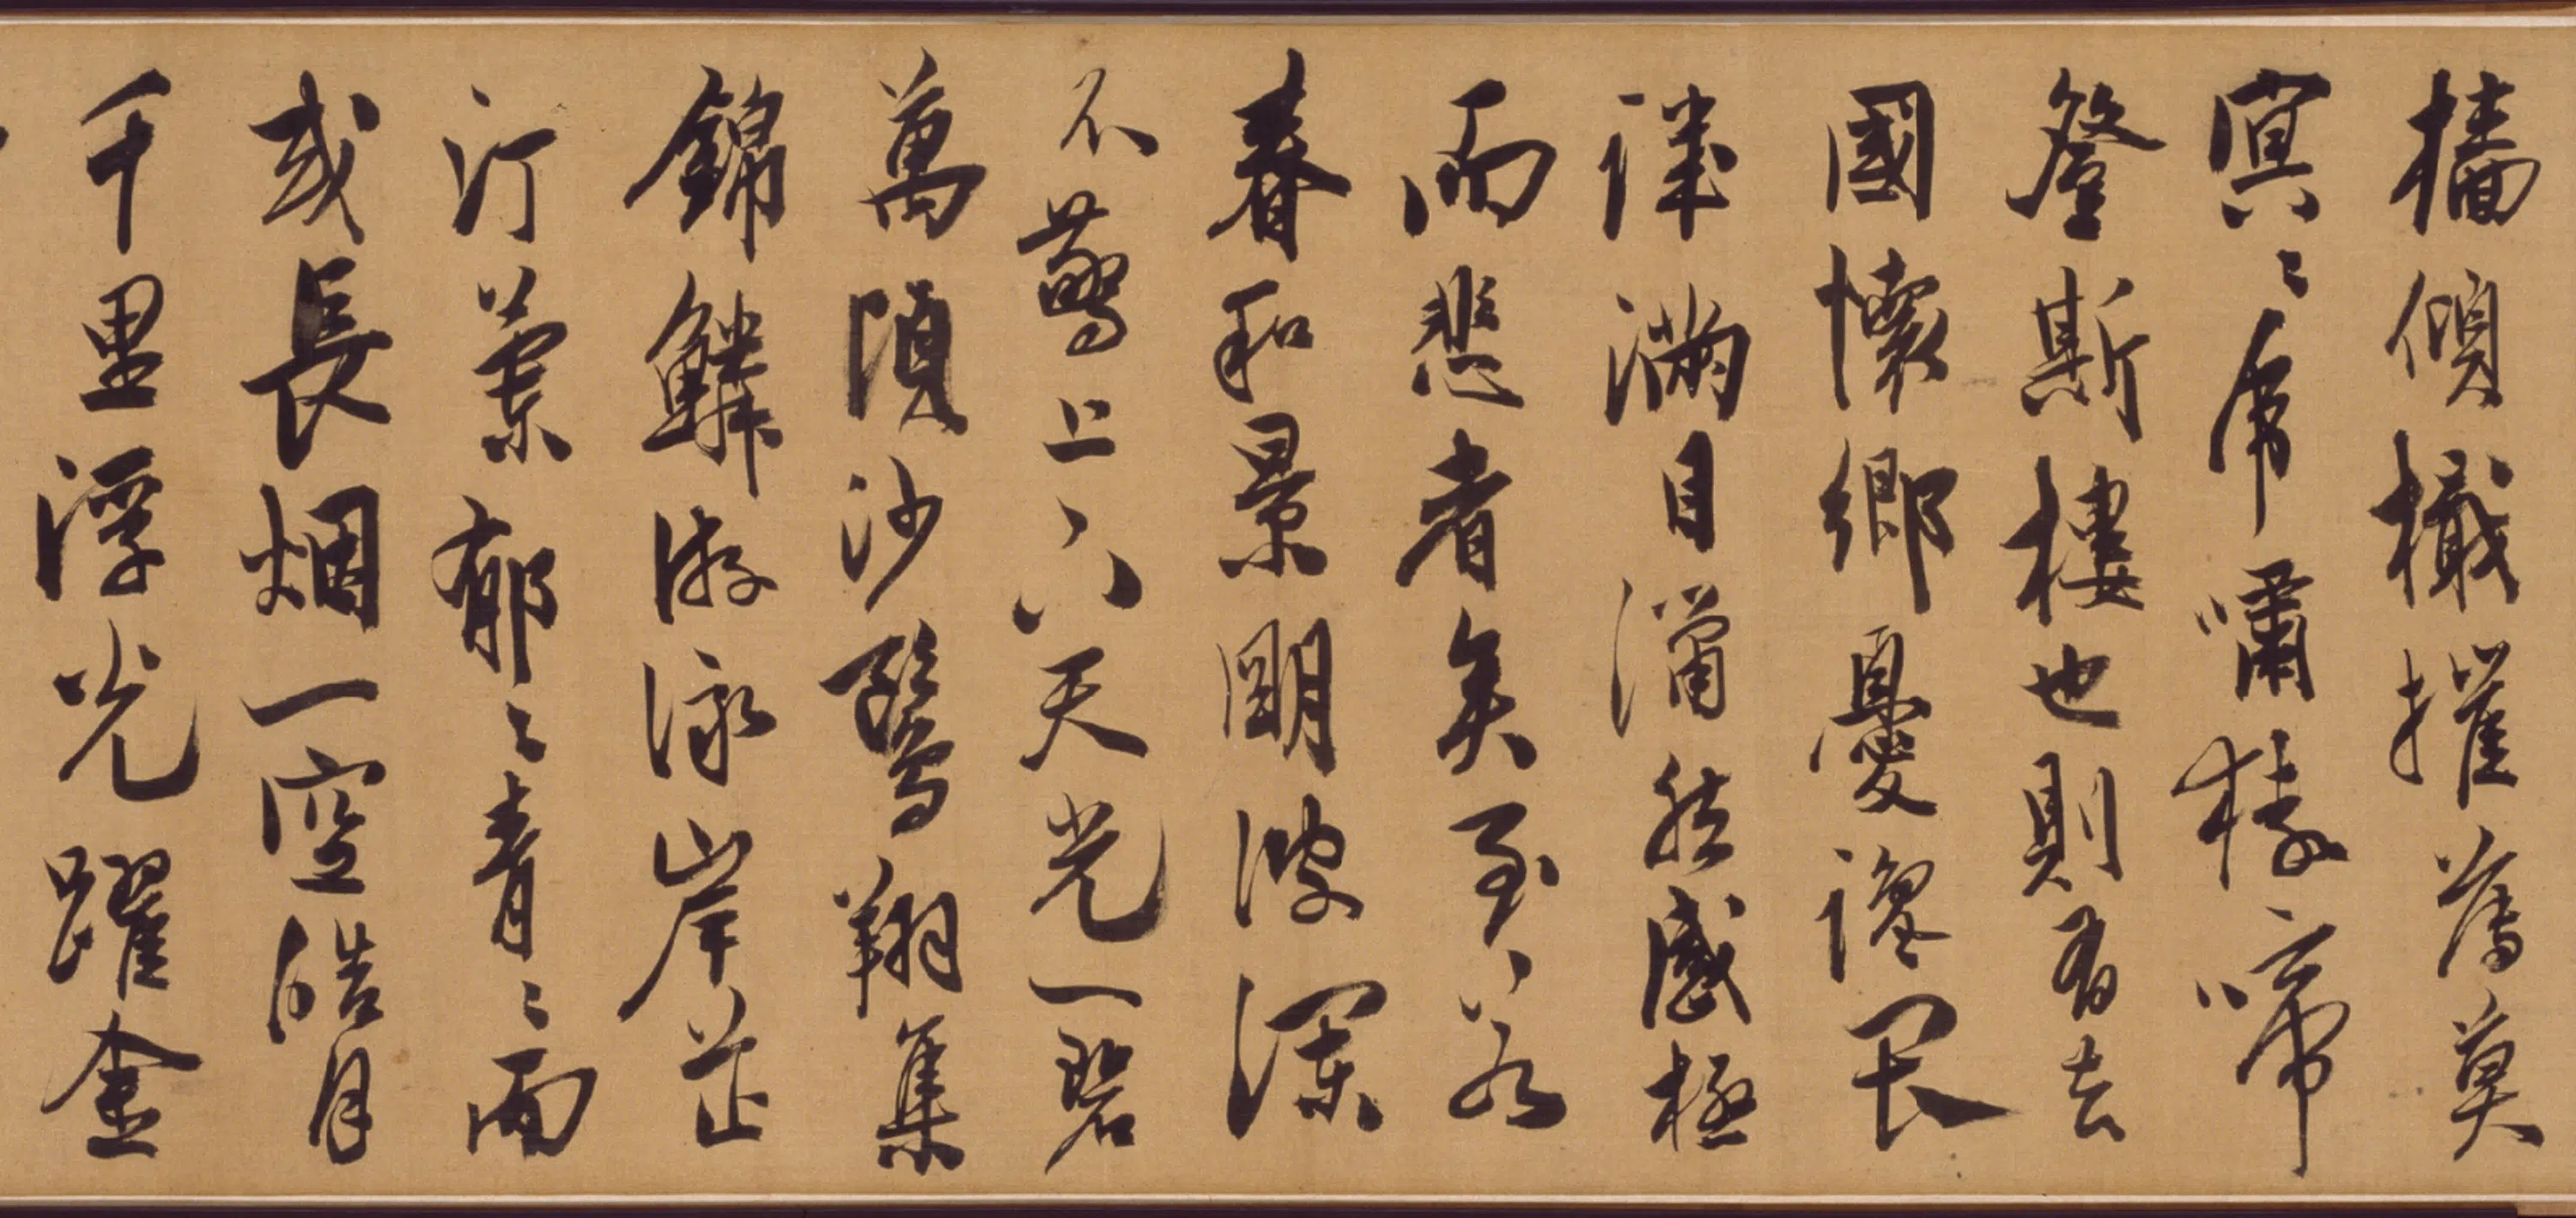 檣傾檝摧薄莫
冥〻虎嘯猿啼
登斯樓也則有去
國懷鄉憂讒畏
譏滿目瀟然感極
而悲者矣至若
春和景明波瀾
不驚上下天光一碧
萬頃沙鷗翔集
錦鱗游泳岸芷
汀蘭郁〻青〻而
或長烟一空皓月
千里浮光躍金